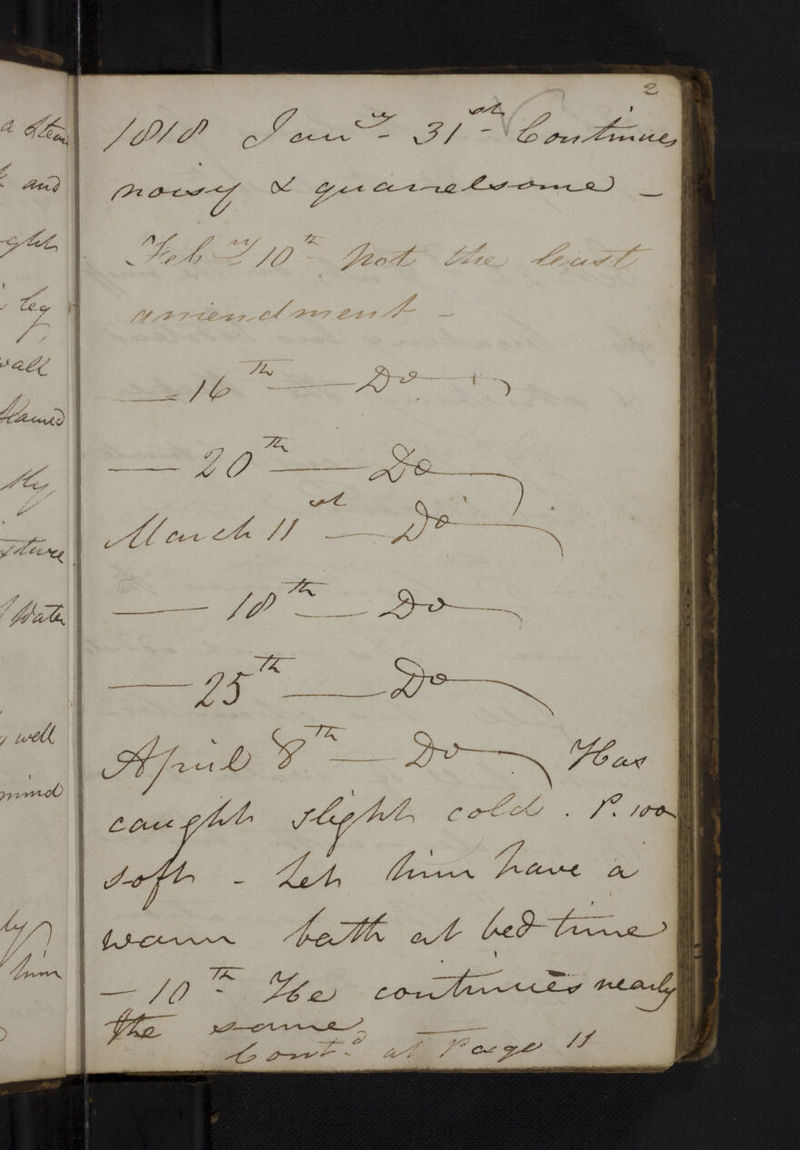 2
1818 Jan.y 31st Continues
noisy & quarrelsome -
Feb.y 10th Not the least
amendment -
— 16th — Do
— 20th — Do
March 11st — Do
— 18th — Do
— 25th — Do
April 8th — Do Has
caught slight cold. P. 100
soft - Let him have a
warm bath at bed time
- 10th He continues nearly
the same
Cont.d at Page 11
a Steam
and
ght
leg
wall
xture
Water
well
mind
ly
him